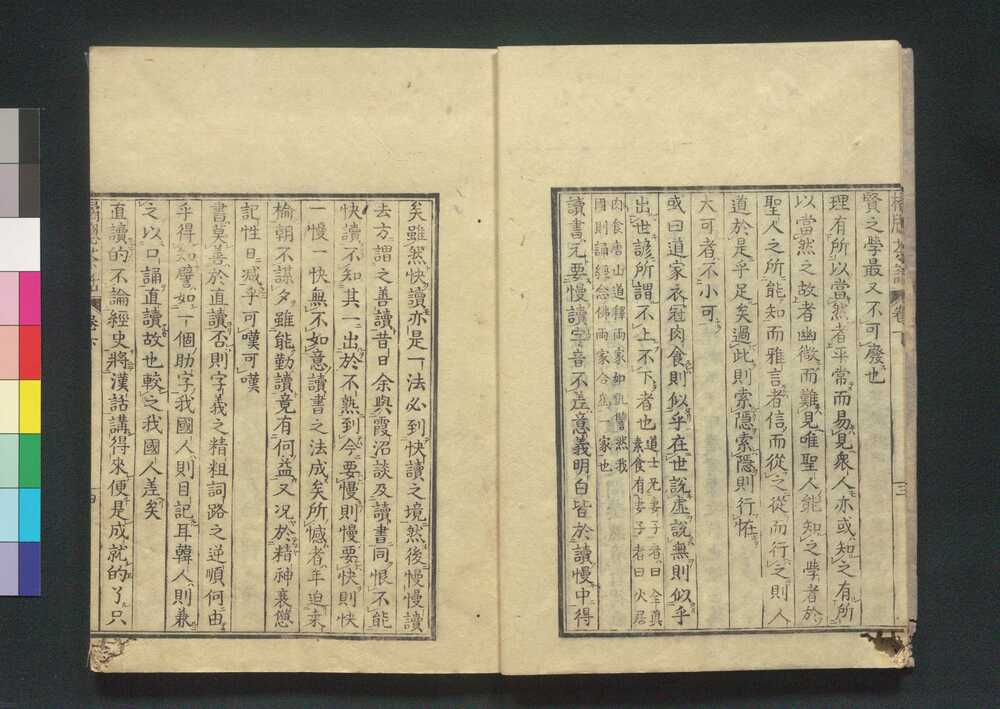 賢之學最又不可廢也
理有所以當然者平常而易見衆人亦或知之有所
以當然之故者幽微而難見唯聖人能知之學者於
聖人之所能知而雅言者信而從之從而行之則人
道於是乎足矣過此則索隱索隱則行恠
大可者不小可
或曰道家衣冠肉食則似乎在世說虛說無則似乎
出世諺所謂不上不下者也道士旡妻子者曰全真
素食有妻子者曰火居
肉食唐山道釋兩家如仇讐然我
國則誦經念佛兩家合為一家也
讀書尤要慢讀字音不差意義明白皆於讀慢中得
三
矣雖然快讀亦是一法必到快讀之境然後慢慢讀
去方謂之善讀昔日余與霞沼談及讀書同恨不能
快讀不知其一出於不熟到今要慢則慢要快則快
一慢一快無不如意讀書之法成矣所憾者年迫桑
榆朝不謀夕雖能勤讀竟有何益又况於精神衰憊
記性日減乎可嘆可嘆
書莫善於直讀否則字義之精粗詞路之逆順何由
乎得知譬如一個助字我國人則目記耳韓人則兼
之以口誦直讀故也較之我國人差矣
直讀的不論經史將漢話講得來便是成就的了只